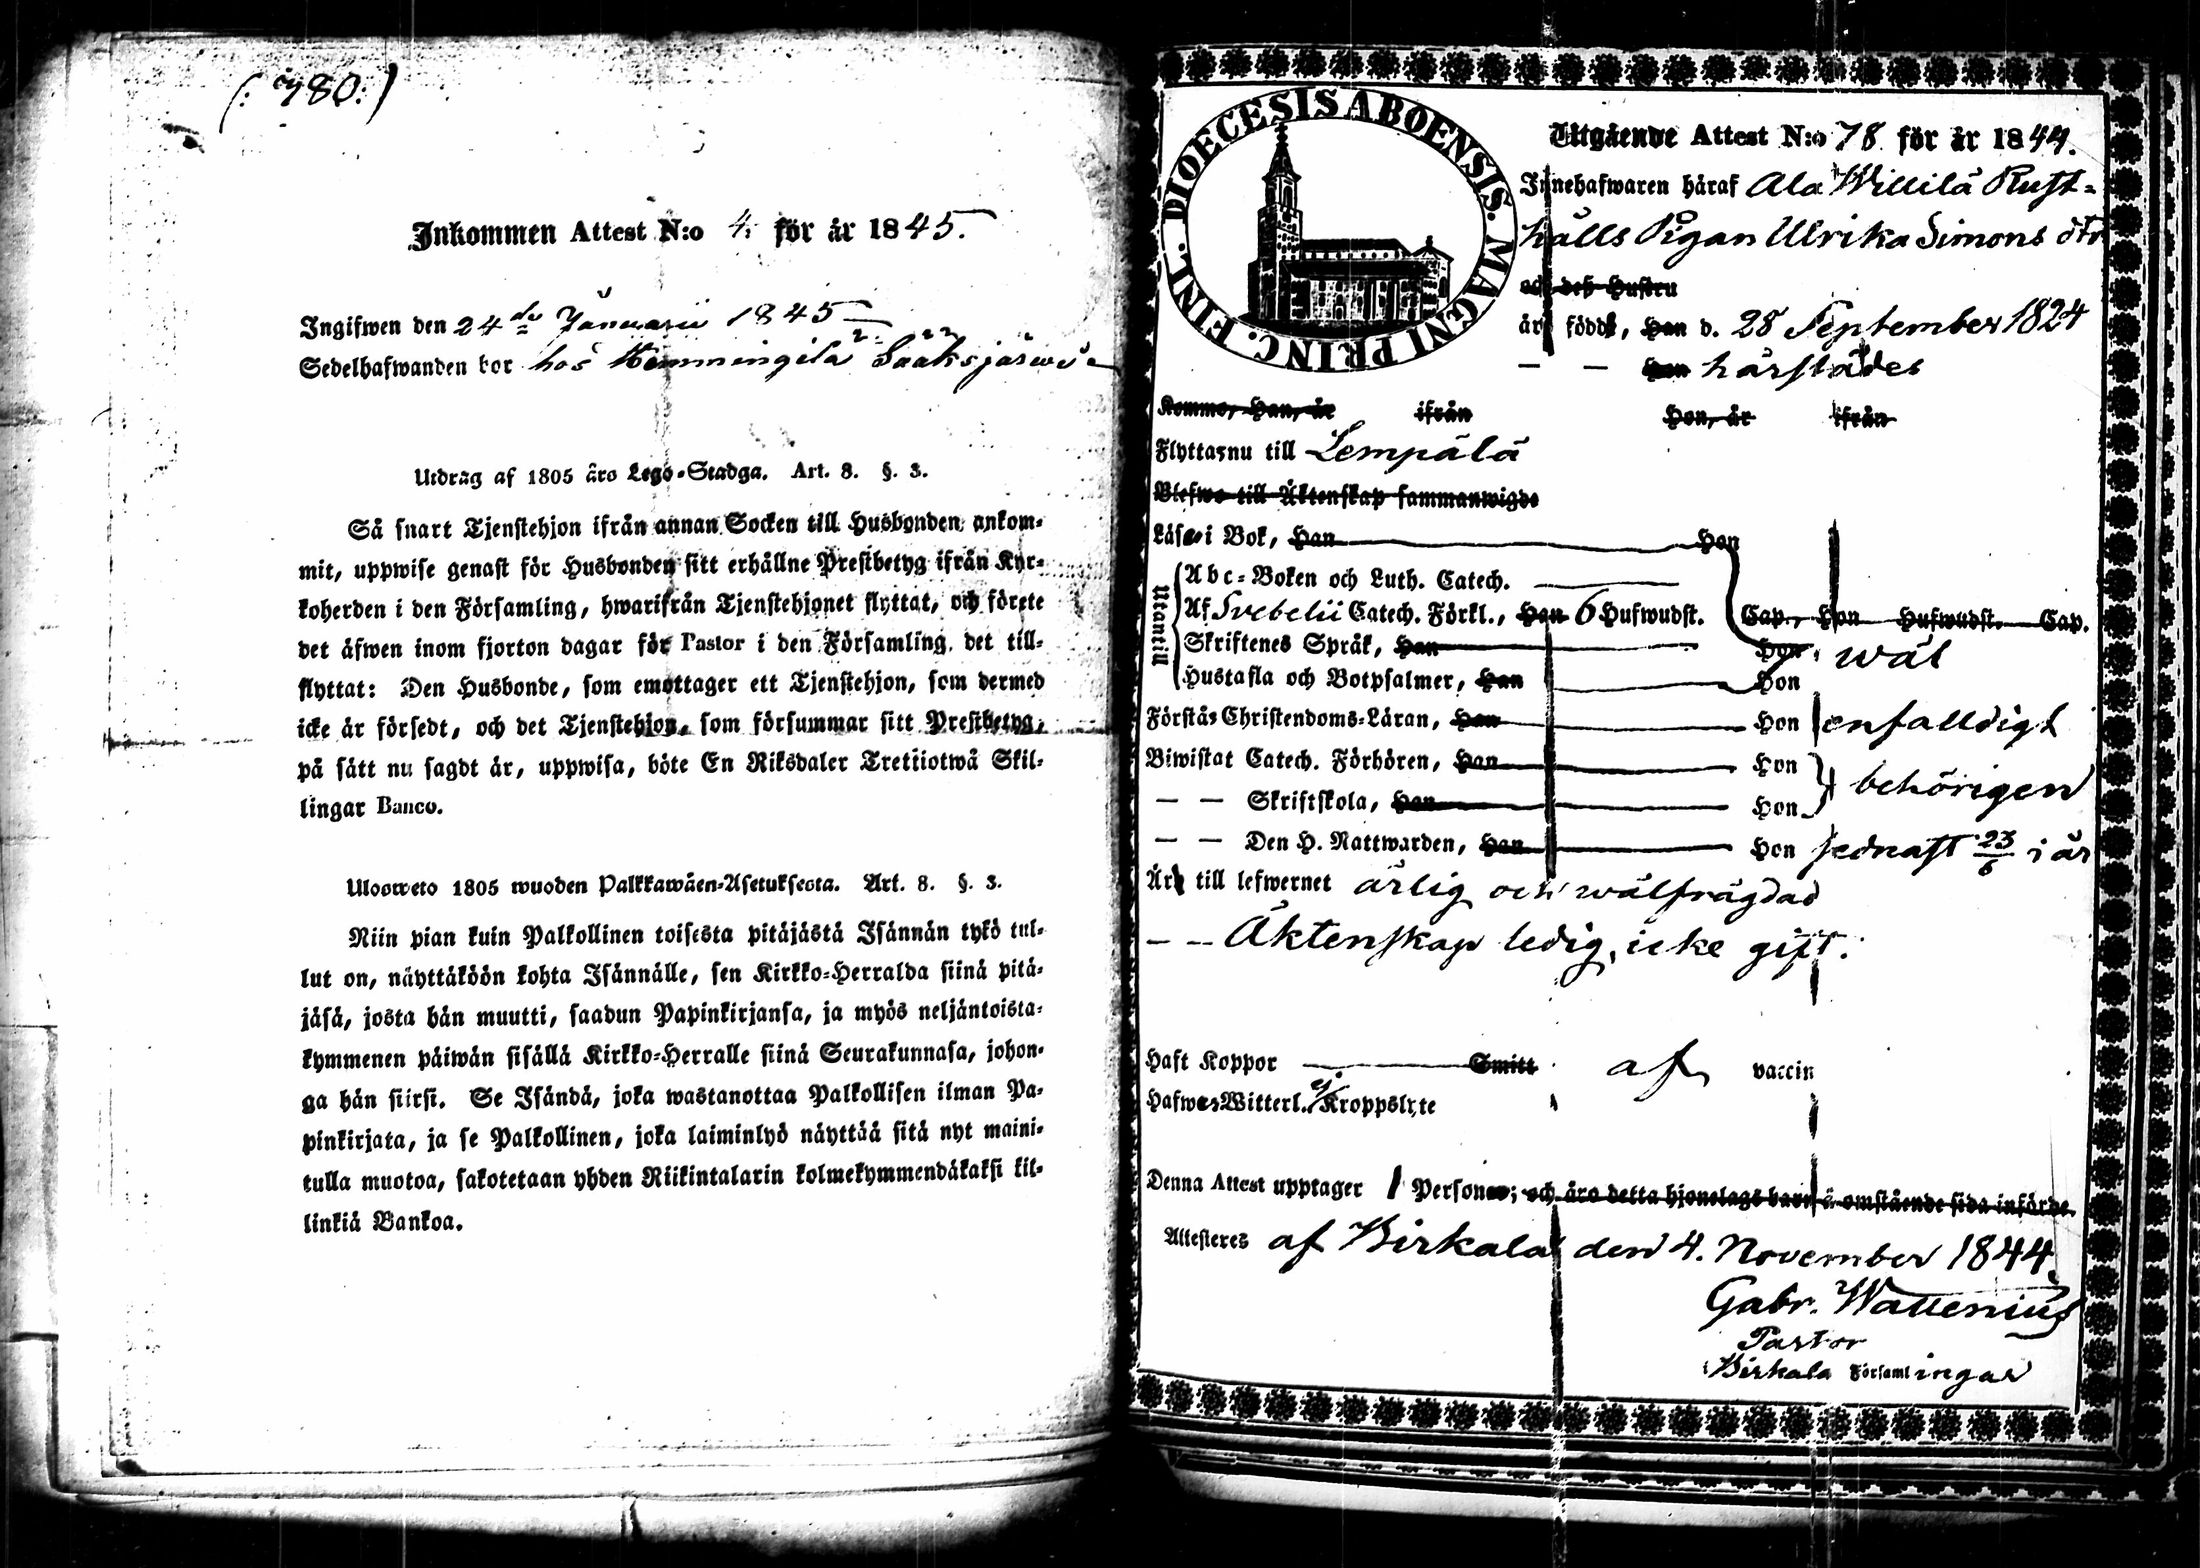 (: 780:)
Inkommen Attest N:o 4. för år 1845.
Ingifwen den 24de Januarii 1845
Sedelhafwanden bor hos Hemmingilä Sääksjärwi
Utdrag af 1805 års Lego-Stadga. Art. 8. §. 3.
Så snart Tjenstehjon ifrån annan Socken till Husbonden ankom-
mit, uppwise genast för Husbonden sitt erhållne Prestbetyg ifrån Kyr-
koherden i den Församling, hwarifrån Tjenstehjonet flyttat, och förete
det äfwen inom fjorton dagar för Pastor i den Församling, det till-
flyttat: Den Husbonde, som emottager ett Tjenstehjon, som dermed
icke är försedt, och det Tjenstehjon, som försummar sitt Prestbetyg,
på sätt nu sagdt är, uppwisa, böte En Riksdaler Trettiotwå Skil-
lingar Banco.
Ulosweto 1805 wuoden Palkkawäen-Asetuksesta. Art. 8. §. 3.
Niin pian kuin Palkollinen toisesta pitäjästä Isännän tykö tul-
lut on, näyttäköön kohta Isännälle, sen Kirkko-Herralda siinä pitä-
jäsä, josta hän muutti, saadun Papinkirjansa, ja myös neljäntoista-
kymmenen päiwän sisällä Kirkko-Herralle siinä Seurakunnasa, johon-
ga hän siirsi. Se Isändä, joka wastanottaa Palkollisen ilman Pa-
pinkirjata, ja se Palkollinen, joka laiminlyö näyttää sitä nyt maini-
tulla muotoa, sakotetaan yhden Riikintalarin kolmekymmendäkaksi kil-
linkiä Bankoa.
DIOECESIS ABOENSIS. MAGNI PRINC. FINL.
Utgående Attest N:o 78 för år 1844.
Innehafwaren häraf Ala Willilä Rust-
hålls Pigan Ulrika Simons dtr
och deß Hustru
är född, Han d. 28 September 1824
— — Hon härstädes
Kommo, Han, år ifrån Hon, år ifrån
Flyttar nu till Lempälä
Blefwo till Äktenskap sammanwigde
Läser i Bok, Han Hon
Utantill
Abc-Boken och Luth. Catech.
Af Svebelii Catech. Förkl., Han 6 Hufwudst. Cap., Hon Hufwudst. Cap.
Skriftenes Språk, Han Hon wäl
Hustafla och Botpsalmer, Han Hon
Förstår Christendoms-Läran, Han Hon enfalldigt
Biwistat Catech. Förhören, Han Hon
behörigen
— — Skriftskola, Han Hon
— — Den H. Nattwarden, Han Hon sednast 23/6 i år
Är till lefwernet ärlig och wälfrägdad
— — Äktenskap ledig, icke gift.
Haft Koppor Smitt af vaccin
Hafwer Witterl. ej Kroppslyte
Denna Attest upptager 1 Person; och äro detta hjonelags barn å omstående sida införde.
Attesteres af Birkala den 4. November 1844.
Gabr. Wallenius
Pastor
Birkala Församlingar